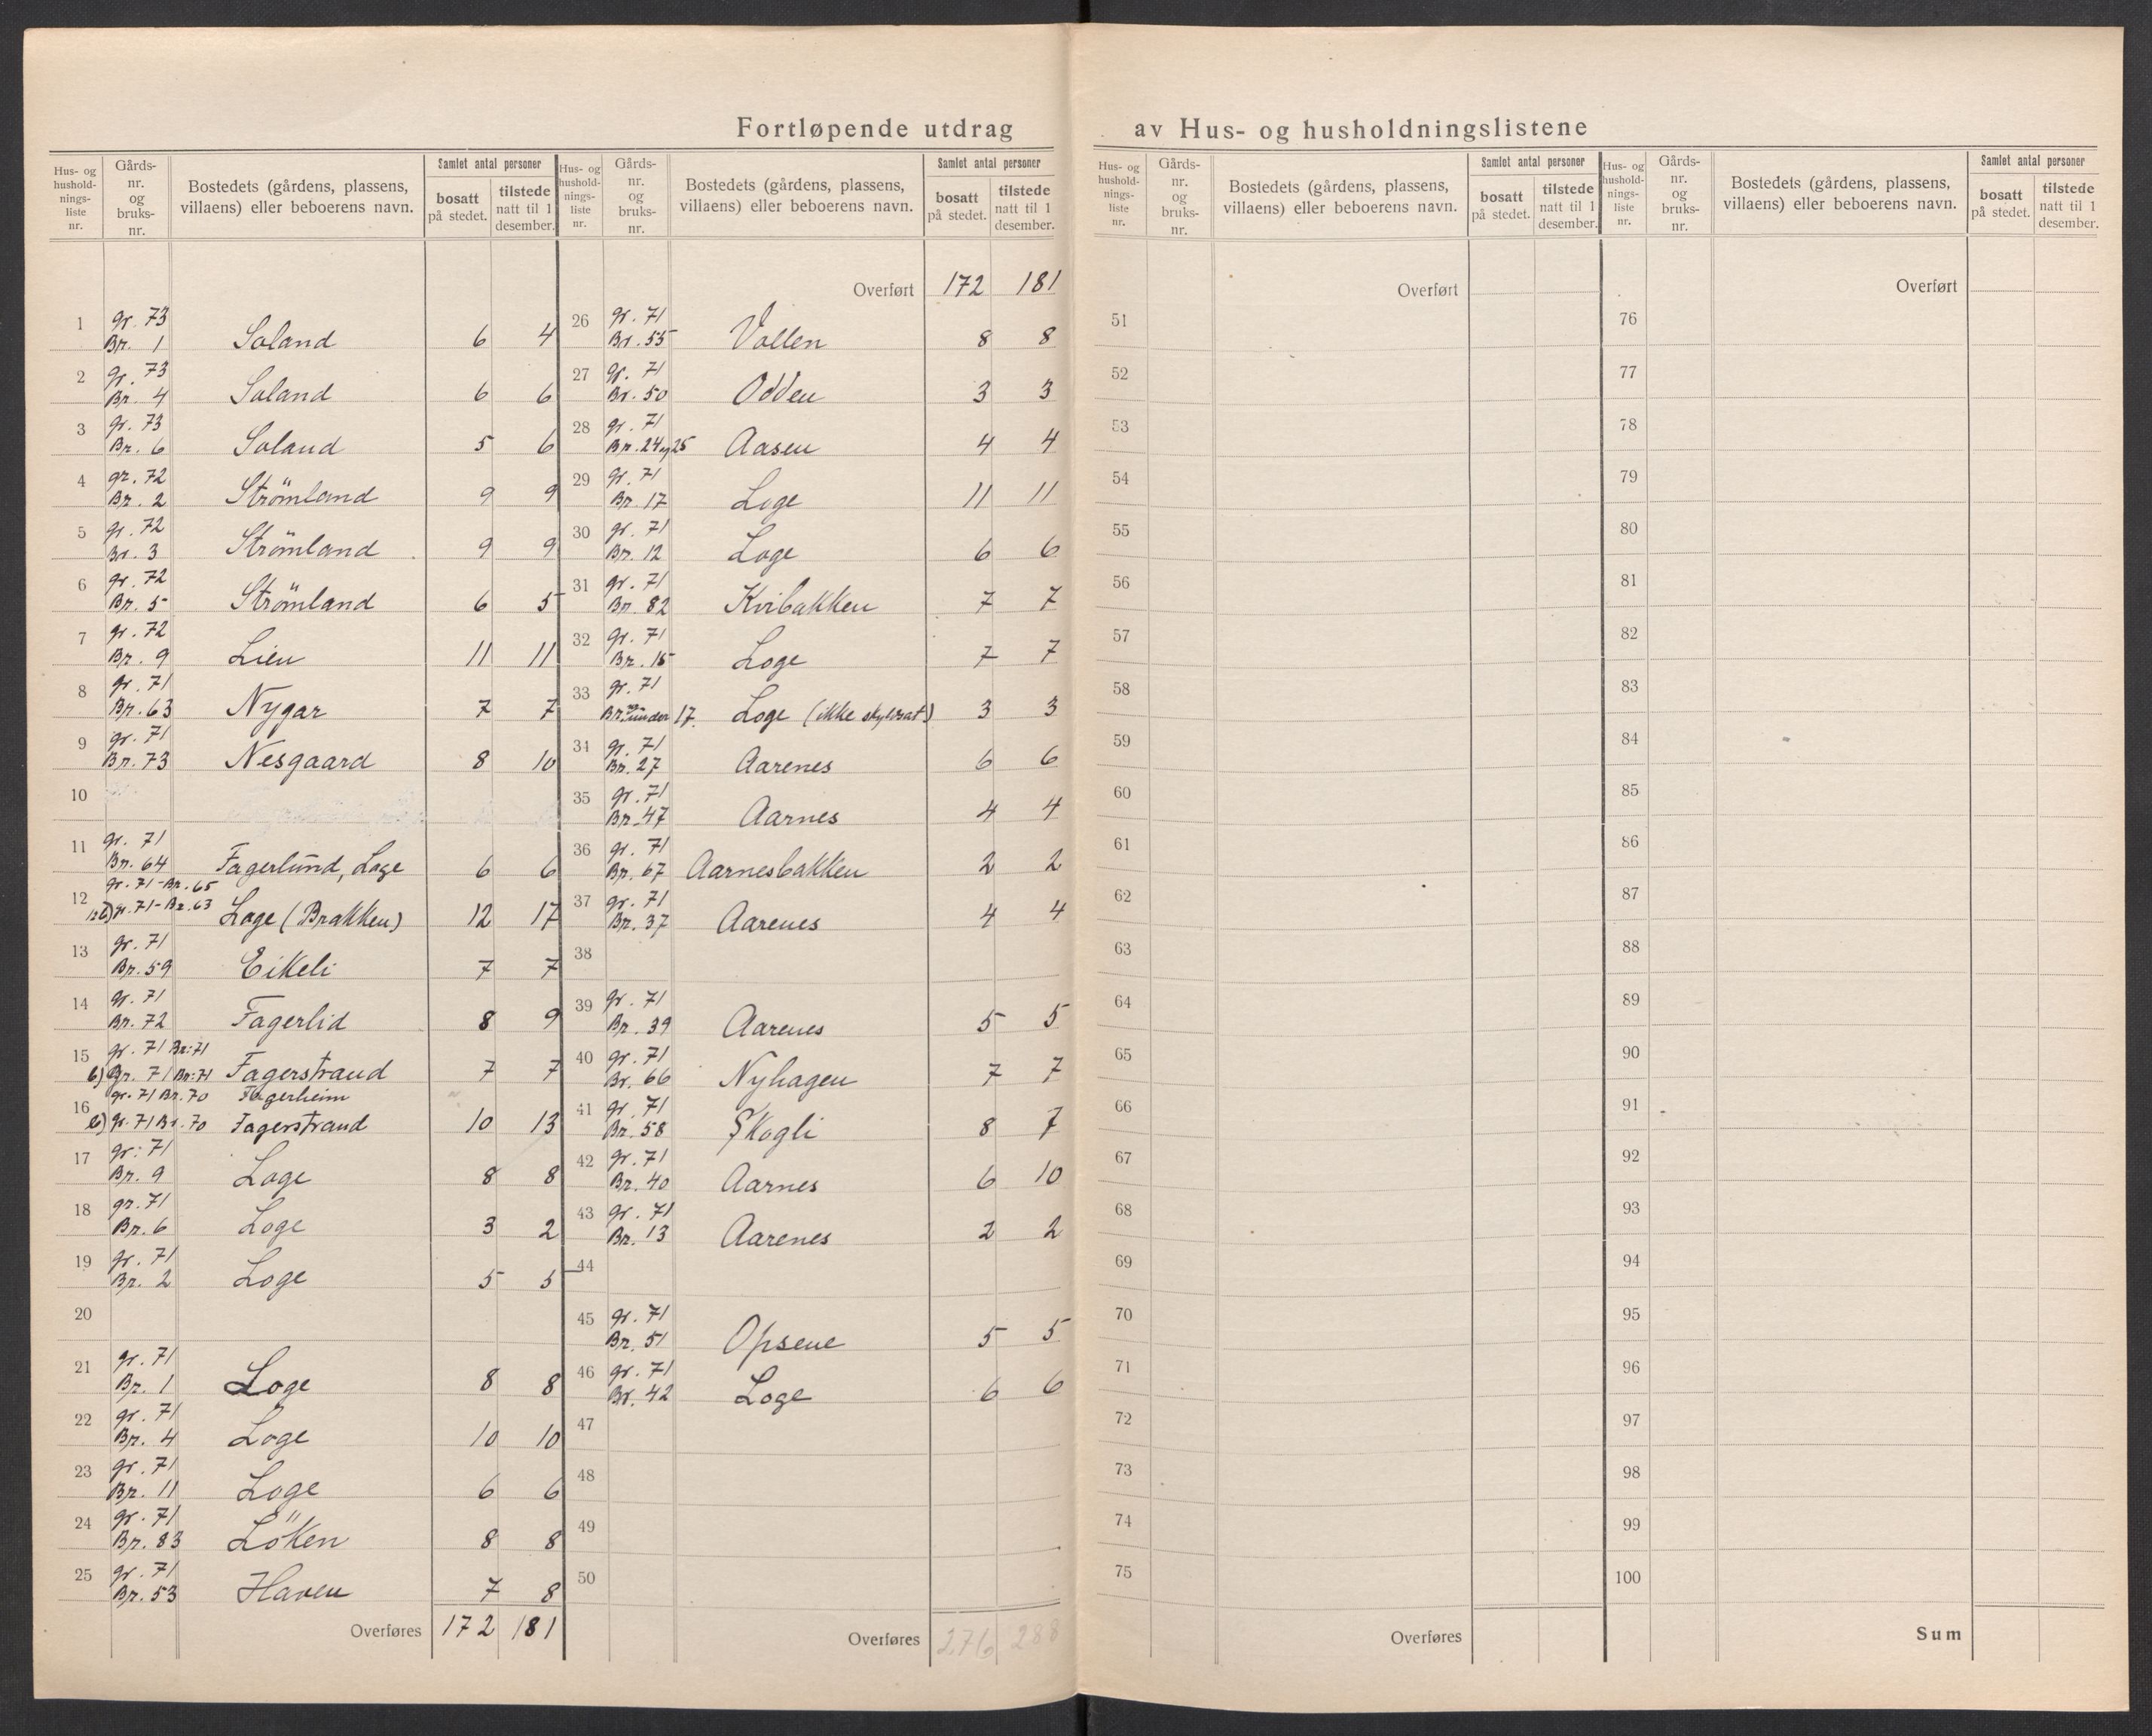 Fortløpende utdrag av Hus- og husholdningslistene
Hus- og hushold-nings-liste nr. | Gårds-nr. og bruks-nr. | Bostedets (gårdens, plassens, villaens) eller beboerens navn. | Samlet antal personer bosatt på stedet. | tilstede natt til 1 desember.
1 gr. 73 Br. 1 Soland 6 4
2 gr. 73 Br. 4 Soland 6 6
3 gr. 73 Br. 6 Soland 5 6
4 gr. 72 Br. 2 Strömland 9 9
5 gr. 72 Br. 3 Strömland 9 9
6 gr. 72 Br. 5 Strömland 6 5
7 gr. 72 Br. 9 Lien 11 11
8 gr. 71 Br. 63 Nygar 7 7
9 gr. 71 Br. 73 Nesgaard 8 10
10
11 gr. 71 Br. 64 Fagerlund, Loge 6 6
12 gr. 71 - Br. 65
12b) gr. 71 - Br. 63 Loge (Brakken) 12 17
13 gr. 71 Br. 59 Eikeli 7 7
14 gr. 71 Br. 72 Fagerlid 8 9
15 gr. 71 Br: 71
b) Gr. 71 Br: 71 Fagerstrand 7 7
16 gr. 71 Br. 70 Fagerheim
b) gr. 71 Br. 70 Fagerstrand 10 13
17 gr: 71 Br. 9 Loge 8 8
18 gr. 71 Br. 6 Loge 3 2
19 gr. 71 Br. 2 Loge 5 5
20
21 gr. 71 Br. 1 Loge 8 8
22 gr. 71 Br. 4 Loge 10 10
23 gr. 71 Br. 11 Loge 6 6
24 gr. 71 Br. 83 Löken 8 8
25 gr. 71 Br. 53 Haven 7 8
Overføres 172 181
Hus- og hushold-nings-liste nr. | Gårds-nr. og bruks-nr. | Bostedets (gårdens, plassens, villaens) eller beboerens navn. | Samlet antal personer bosatt på stedet. | tilstede natt til 1 desember.
Overført 172 181
26 gr. 71 Br. 55 Vollen 8 8
27 gr. 71 Br. 50 Odden 3 3
28 gr. 71 Br. 24 og 25 Aasen 4 4
29 gr. 71 Br. 17 Loge 11 11
30 gr. 71 Br. 12 Loge 6 6
31 gr. 71 Br. 82 Kvibakken 7 7
32 gr. 71 Br. 15 Loge 7 7
33 gr. 71 Br. under 17. Loge (ikke skyldsat) 3 3
34 gr. 71 Br. 27 Aarenes 6 6
35 gr. 71 Br. 47 Aarnes 4 4
36 gr. 71 Br. 67 Aarnesbakken 2 2
37 gr. 71 Br. 37 Aarenes 4 4
38
39 gr. 71 Br. 39 Aarenes 5 5
40 gr. 71 Br. 66 Nyhagen 7 7
41 gr. 71 Br. 58 Skogli 8 7
42 gr. 71 Br. 40 Aarnes 6 10
43 gr. 71 Br. 13 Aarenes 2 2
44
45 gr. 71 Br. 51 Opsene 5 5
46 gr. 71 Br. 42 Loge 6 6
47
48
49
50
Overføres 276 288
Hus- og hushold-nings-liste nr. | Gårds-nr. og bruks-nr. | Bostedets (gårdens, plassens, villaens) eller beboerens navn. | Samlet antal personer bosatt på stedet. | tilstede natt til 1 desember.
Overført
51
52
53
54
55
56
57
58
59
60
61
62
63
64
65
66
67
68
69
70
71
72
73
74
75
Overføres
Hus- og hushold-nings-liste nr. | Gårds-nr. og bruks-nr. | Bostedets (gårdens, plassens, villaens) eller beboerens navn. | Samlet antal personer bosatt på stedet. | tilstede natt til 1 desember.
Overført
76
77
78
79
80
81
82
83
84
85
86
87
88
89
90
91
92
93
94
95
96
97
98
99
100
Sum